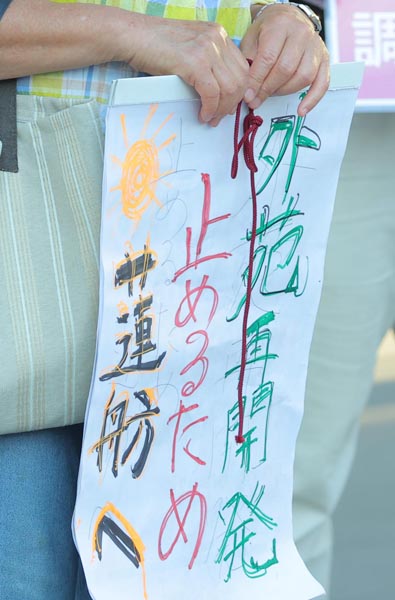 調
外苑再開発
止めるため
#蓮舫へ